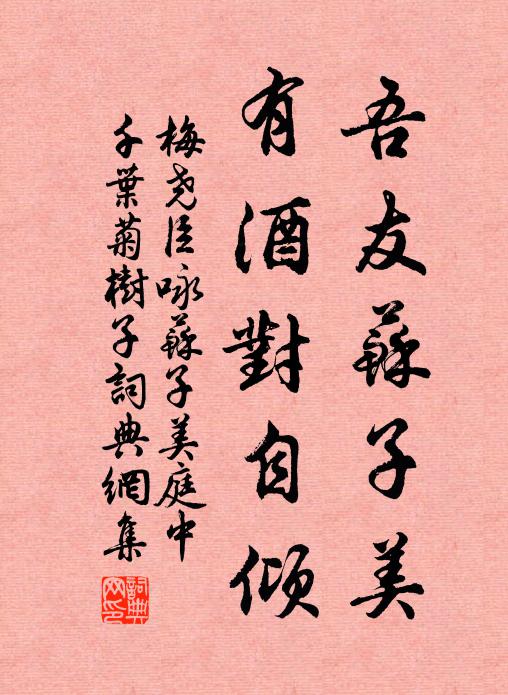 吾友蘇子美
有酒對自傾
梅堯臣咏蘇子美庭中
千葉菊樹子詞典網集
詞典網印